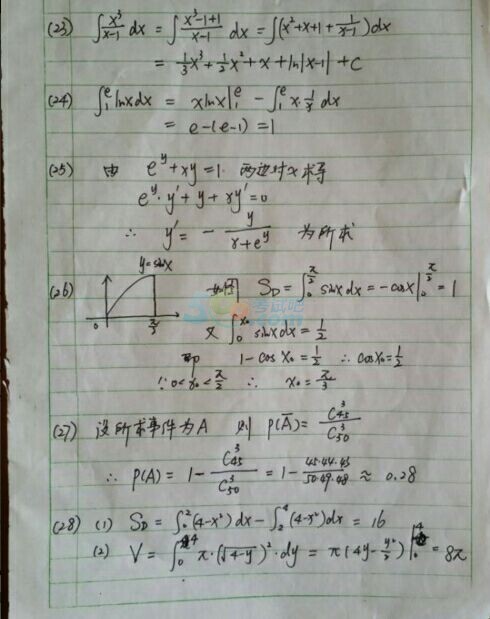 (23) ∫ x³/(x-1) dx = ∫ (x³-1+1)/(x-1) dx = ∫(x²+x+1+ 1/(x-1))dx
= 1/3 x³ + 1/2 x² + x + ln|x-1| + C
(24) ∫₁ᵉ lnx dx = xlnx|₁ᵉ - ∫₁ᵉ x·1/x dx
= e-(e-1) = 1
(25) 由 eʸ+xy=1 两边对x求导
eʸ·y′+y+xy′=0
∴ y′ = - y/(x+eʸ) 为所求
y=sinx
(26) 如图 S_D = ∫₀^(π/2) sinxdx = -cosx|₀^(π/2) = 1
0 π/2
又 ∫₀^(x₀) sinxdx = 1/2
即 1-cosX₀ = 1/2 ∴ cosX₀ = 1/2
∵ 0<x₀<π/2 ∴ x₀ = π/3
(27) 设所求事件为A 则 P(Ā) = C³₄₅/C³₅₀
∴ P(A) = 1 - C³₄₅/C³₅₀ = 1 - 45·44·43/50·49·48 ≈ 0.28
(28) (1) S_D = ∫₀²(4-x²)dx - ∫₂⁴(4-x²)dx = 16
(2) V = ∫₀⁴ π·(√(4-y))²·dy = π(4y - y²/2)|₀⁴ = 8π